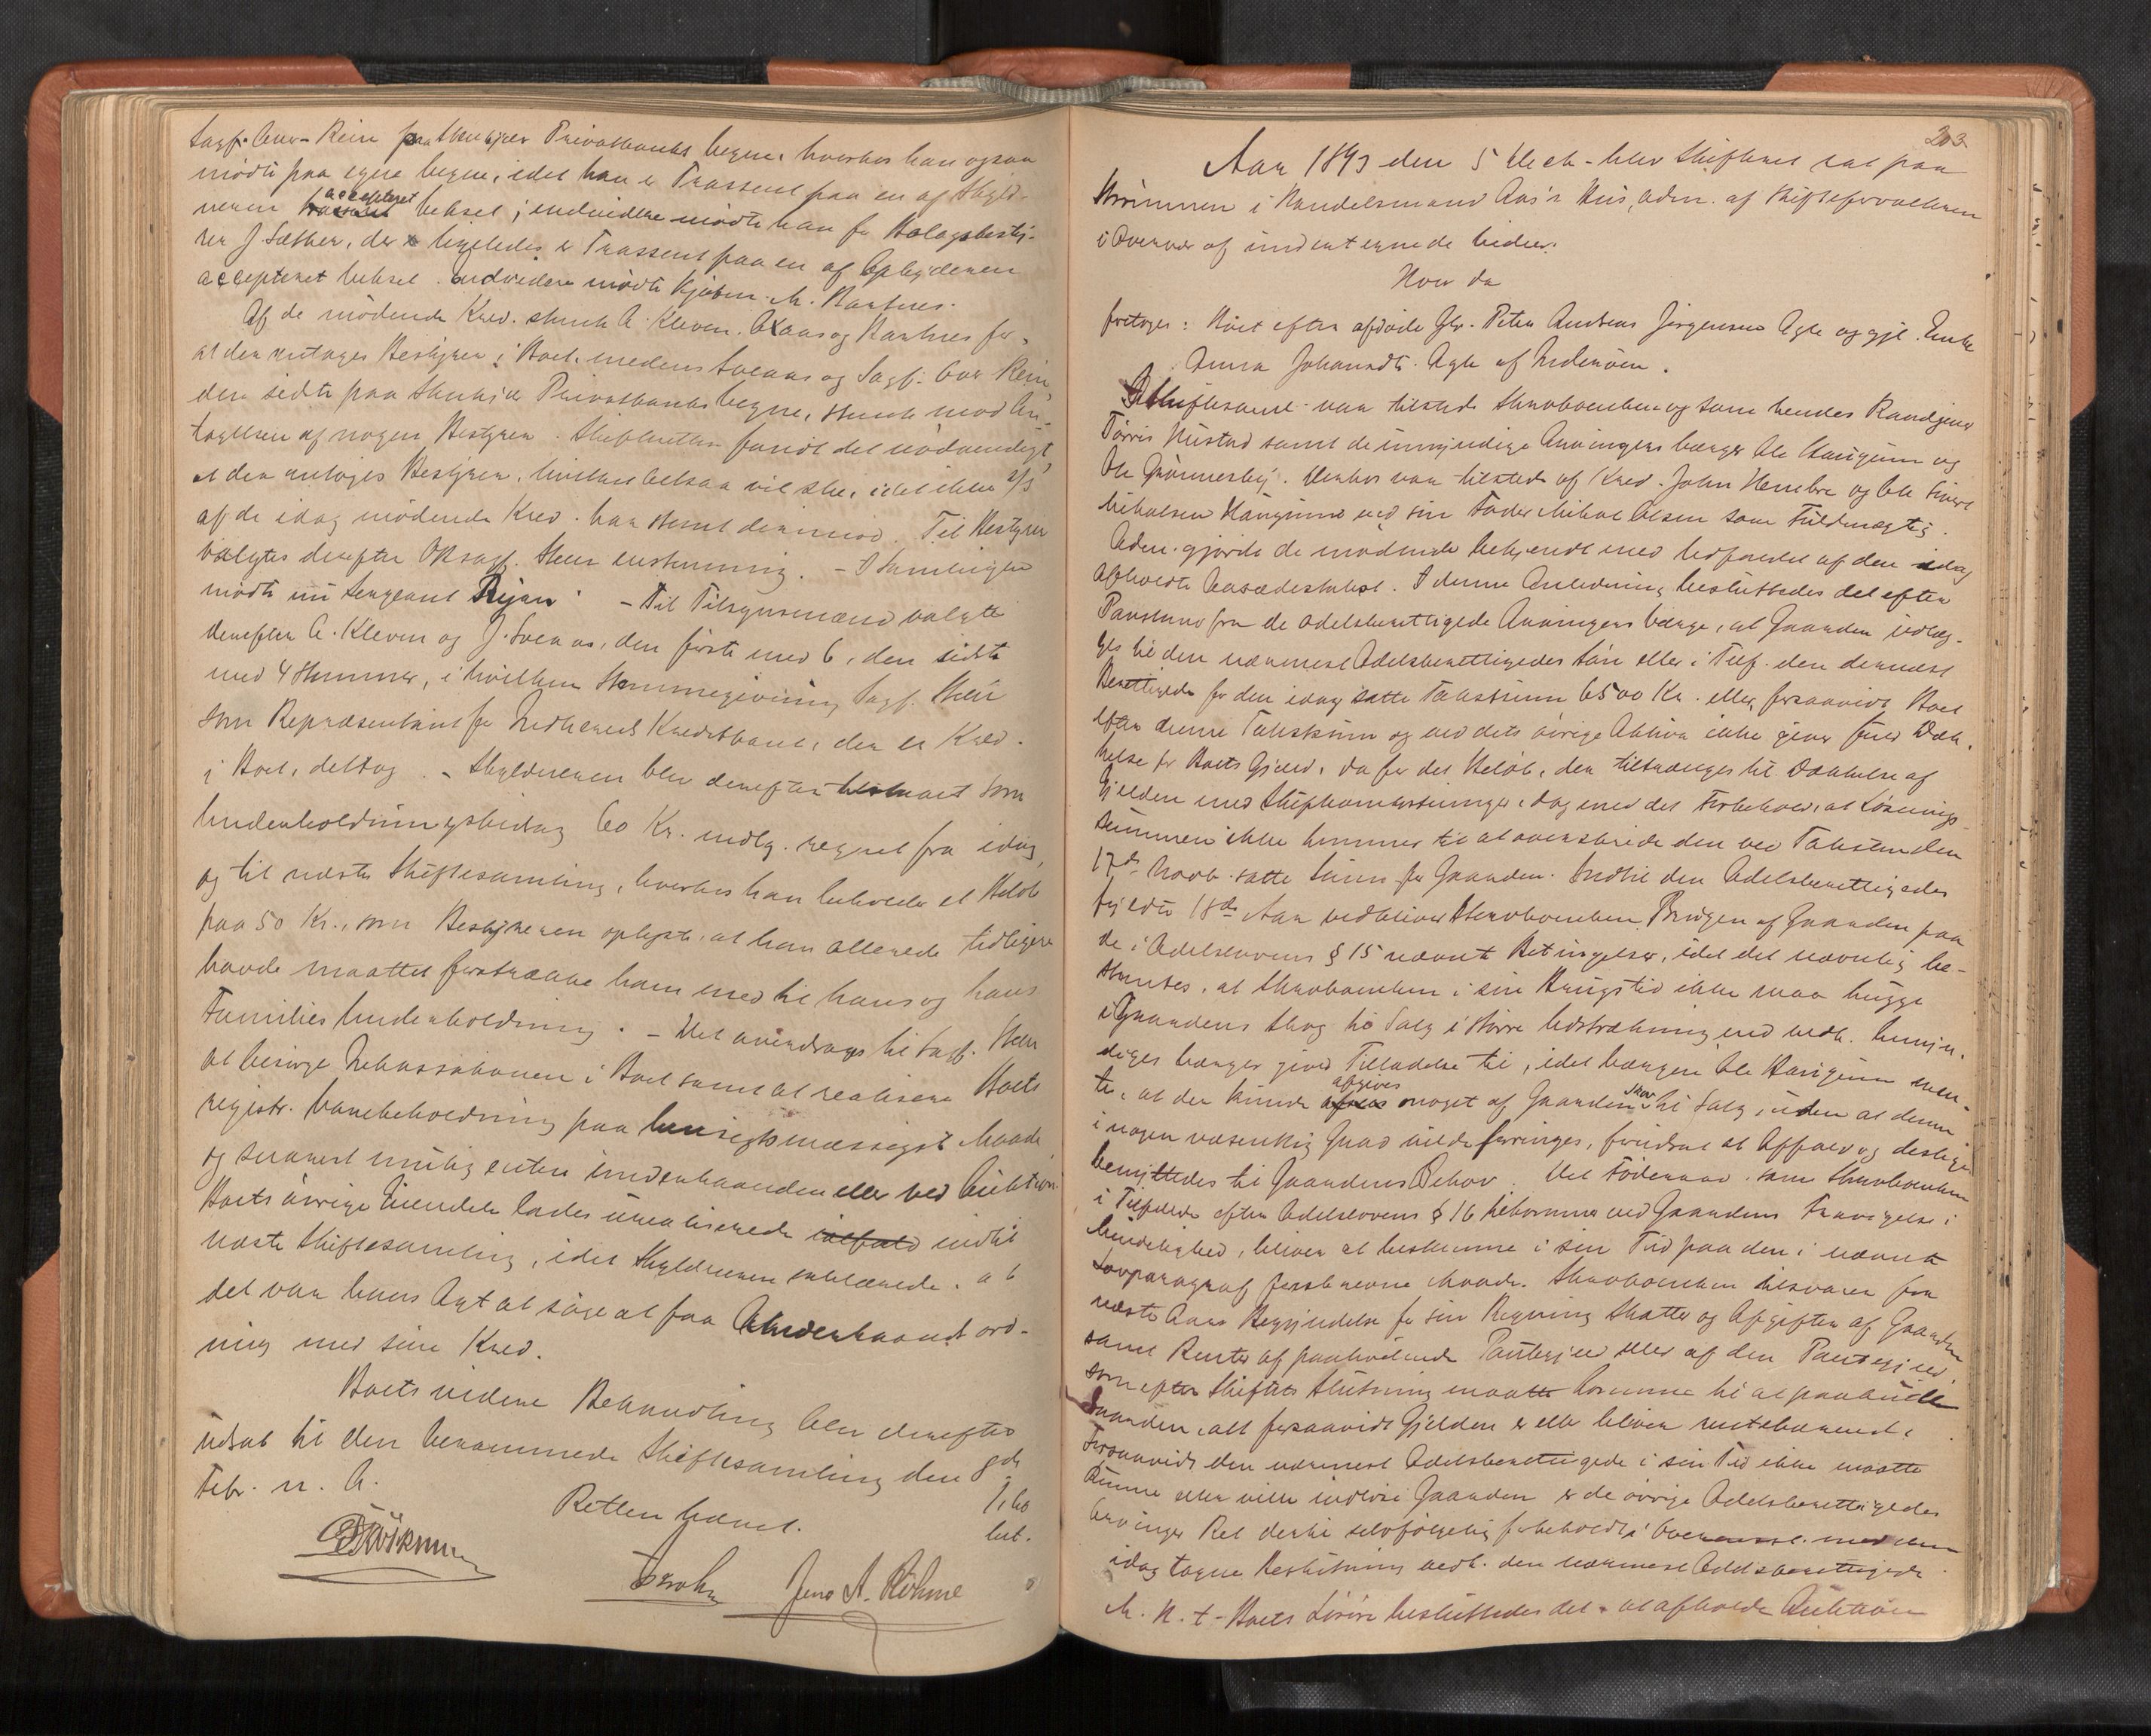 Sagf. Over-Rein paa Stenkjær Privatbanks Vegne, hvorhos han ogsaa
mødte paa egne Vegne, idet han er Trassent paa en af Skyld-
neren accepteret Veksel; endvidere mødte han for Bolagsbesty-
rer J. Sæther, der ligeledes er Trassent paa en af Opbyderen
accepteret Veksel. Endvidere mødte Kjøbm. M.
Af de mødende Kred. stemte A. Kleven, og for,
at der antages Bestyrer i Boet, medens Sveaas og Sagf. Over Rein
den sidste paa Stenkjær Privatbanks Vegne, stemte mod An-
tagelsen af nogen Bestyrer. Skifteretten fandt det nødvendigt
at der antages Bestyrer, hvilket altsaa vil ske, idet ikke 2/3
af de idag mødende Kred. har stemt derimod. Til Bestyrer
valgtes derefter OKsagf. Stenstemmig. - I Samlingen
mødte nu Sergeant - Til Tilsynsmænd valgte
derefter A. Kleven og J. Sveaas, den første med 6, den sidste
med 4 Stemmer, i hvilken Stemmegivning Sagf.
som Repræsentant for Indherreds Kreditbank, der er Kred.
i Boet, deltog. - Skyldneren blev derefter som
Underholdningsbidrag 60 Kr. mdlg. regnet fra idag,
og til næste Skiftesamling, hvorhos han beholder et Beløb
paa 50 Kr., som Bestyreren oplyste, at han allerede tidligere
havde maattet forstrække ham med til hans og hans
Families Underholdning. - Det overdrages til Sagf.
at besørge Inkassationen i Boet samt at realisere Boets
registr. Varebeholdning paa hensigtsmæssigst Maade
og snarest mulig enten underhaanden eller ved Auktion.
Boets øvrige Eiendele lades urealiserede indtil
næste Skiftesamling, idet Skyldneren erklærede, at
det var hans Agt at søge at faa Underhaandsord-
ning med sine Kred.
Boets videre Behandling blev derefter
udsat til den berammede Skiftesamling den 8de
Febr. n. A.
Retten hævet.
Jens A. Röhme
203
Aar 1893 den 5 Decb. blev Skifteret sat paa
Strømmen i Handelsmand Aas's Hus, adm. af Skifteforvalteren
i Overvær af undertegnede Vidner.
Hvor da
foretoges: Boet efter afdøde Gbr. Peter Andreas Jørgensen Agle og gjl. Enke
Anna Johansdt. Agle af Inderøen.
I Skiftesaml. var tilstede Skrivboenken og som hendes Raadgiver
Tørris Hustad samt de umyndige Arvingers Værger Ole Haugum og
Ole Grønnesby. Derhos var tilstede af Kred. John Henbre og Ole Sivert
Mikalsen Haugum ved sin Fader Mikal Olsen som Fuldmægtig.
Adm. gjorde de mødende bekjendt med Udfaldet af den idag
afholdte Aasædestakst. I denne Anledning besluttedes det efter
Paastand fra de odelsberettigede Arvingers Værge, at Gaarden udlæg-
ges til den nærmest Odelsberettigedes Søn eller i Tilf. den dernæst
Berettigede for den idag satte Takstsum 6500 Kr. eller forsaavidt Boet
efter denne Takstsum og ved dets øvrige Aktiva ikke giver fuld Dæk-
kelse for Boets Gjæld, da for det Beløb, der tiltrænges til Dækkelse af
Gjælden med Skifteomkostninger, dog med det Forbehold, at Løsnings-
summen ikke kommer til at overskride den ved Taksten den
17de Novb. satte Sum for Gaarden. Indtil den Odelsberettigedes
fyldte 18de Aar vedbliver Skrivboenken Brugen af Gaarden paa
de i Odelslovens § 15 nævnte Betingelser, idet det nævnlig be-
stemtes, at Skrivboenken i sin Brugstid ikke maa hugge
i Gaardens Skog til Salg i større Udstrækning end vedk. Umyn-
diges Værger giver Tilladelse til, idet Værgen Ole Haugum men-
te, at der kunde afgives noget af Gaardens Skov til Salg, uden at denne
i nogen væsentlig Grad vilde forringes, forudsat at Affald og deslige
benyttedes til Gaardens Behov. Det Føderaad, som Skrivboenken
i Tilfælde efter Odelslovens § 16 tilkommer ved Gaardens Fravigelse i
Mindelighed, bliver at bestemme i sin Tid paa den i nævnte
Lovparagraf foreskrevne Maade. Skrivboenken tilsvarer fra
næste Aars Begyndelse for sin Regning Skatter og Afgifter af Gaarden
samt Renter af paahvilende Pantegjæld eller af den Pantegjæld,
som efter Skiftets Slutning maatte komme til at paahvile
Gaarden, alt forsaavidt Gjælden er eller bliver rentebærende.
Forsaavidt den nærmest Odelsberettigede i sin Tid ikke maatte
kunne eller ville indløse Gaarden er de øvrige Odelsberettigedes
Arvinger Ret dertil selvfølgelig forbeholdt i Overensst. med den
idag tagne Beslutning vedk. den nærmest Odelsberettigede.
M. H. t. Boets Løsøre besluttedes det at afholde Auktion